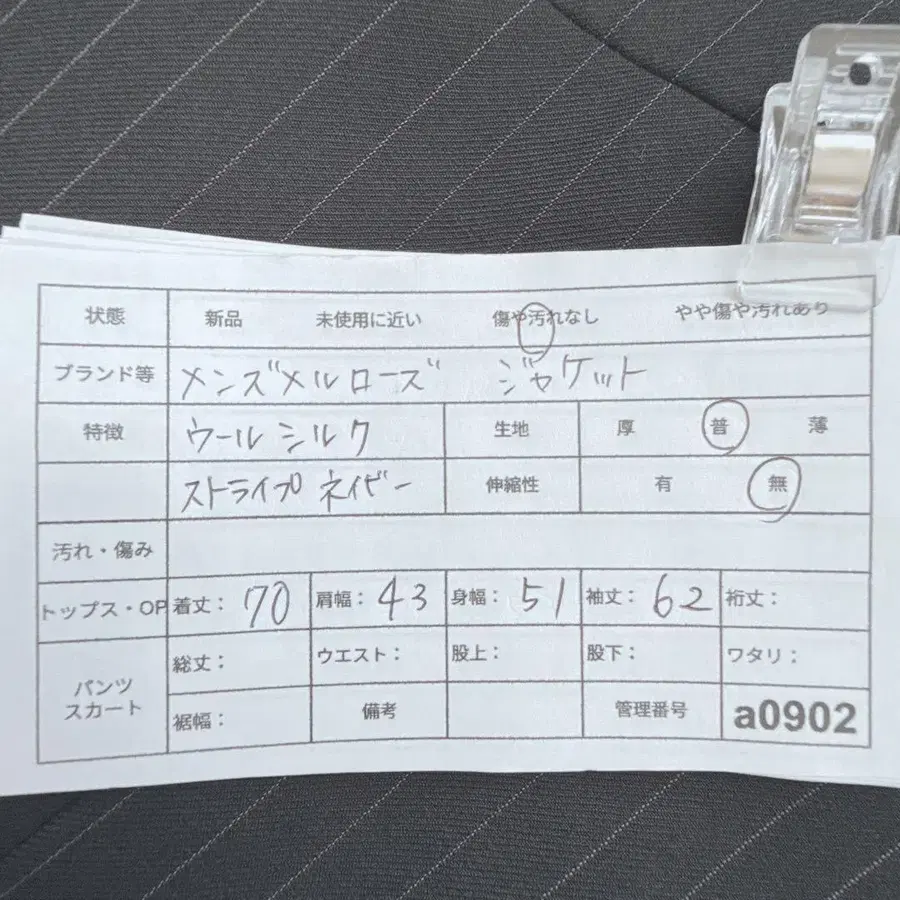 状態 新品 未使用に近い 傷や汚れなし やや傷や汚れあり
ブランド等 メンズメルローズ ジャケット
特徴 ウールシルク 生地 厚 普 薄
ストライプ ネイビー 伸縮性 有 無
汚れ・傷み
トップス・OP 着丈: 70 肩幅: 43 身幅: 51 袖丈: 62 裄丈:
パンツ スカート 総丈: ウエスト: 股上: 股下: ワタリ:
裾幅: 備考 管理番号 a0902